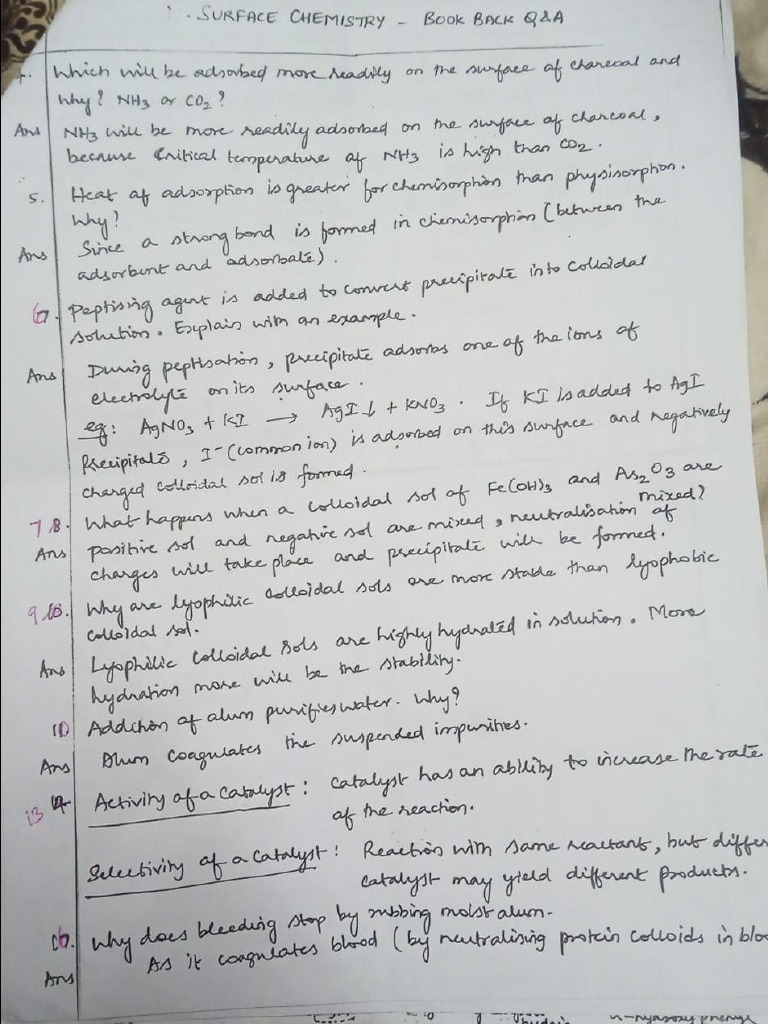 . SURFACE CHEMISTRY - BOOK BACK Q&A
4. Which will be adsorbed more readily on the surface of charcoal and
why? NH3 or CO2?
Ans NH3 will be more readily adsorbed on the surface of charcoal,
because critical temperature of NH3 is high than CO2.
5. Heat of adsorption is greater for chemisorption than physisorption.
Why?
Ans Since a strong bond is formed in chemisorption (between the
adsorbent and adsorbate).
6. Peptising agent is added to convert precipitate into colloidal
solution. Explain with an example.
Ans During peptisation, precipitate adsorbs one of the ions of
electrolyte on its surface.
eg: AgNO3 + KI → AgI↓ + KNO3. If KI is added to AgI
Precipitate, I- (common ion) is adsorbed on this surface and negatively
charged colloidal sol is formed.
7 8. What happens when a colloidal sol of Fe(OH)3 and As2O3 are
mixed?
Ans positive sol and negative sol are mixed, neutralisation of
charges will take place and precipitate will be formed.
9 10. Why are lyophilic colloidal sols are more stable than lyophobic
colloidal sol.
Ans Lyophilic colloidal sols are highly hydrated in solution. More
hydration more will be the stability.
10 Addition of alum purifies water. Why?
Ans Alum coagulates the suspended impurities.
13 Activity of a catalyst: Catalyst has an ability to increase the rate
of the reaction.
Selectivity of a catalyst: Reaction with same reactant, but differ
catalyst may yield different products.
why does bleeding stop by rubbing moist alum.
Ans As it coagulates blood (by neutralising protein colloids in bloo